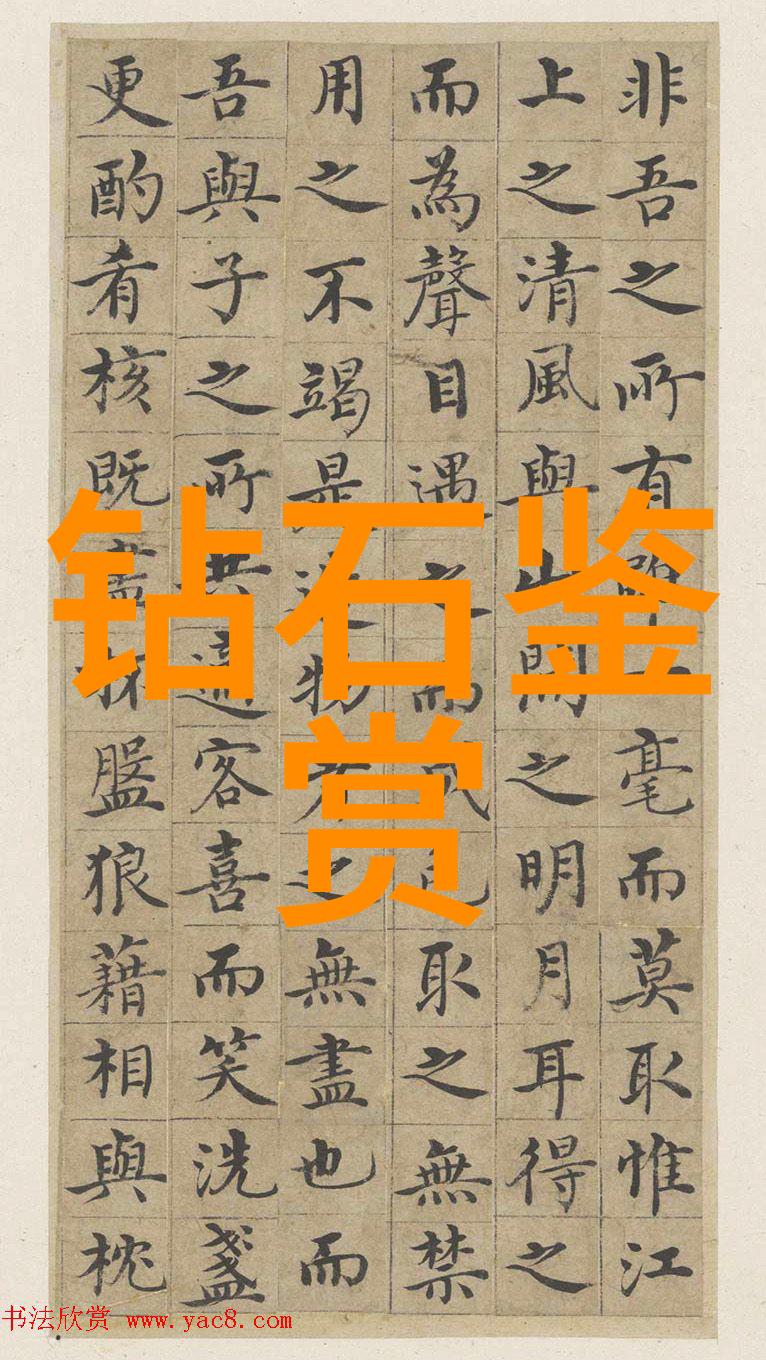 非吾之所有一毫而莫取惟江
上之清風與山間之明月耳得之
而為聲目遇之而成色取之無禁
用之不竭是造物者之無盡也而
吾與子之所共適客喜而笑洗盞
更酌肴核既盡杯盤狼藉相與枕
钻石鉴
赏
书法欣赏 www.yac8.com